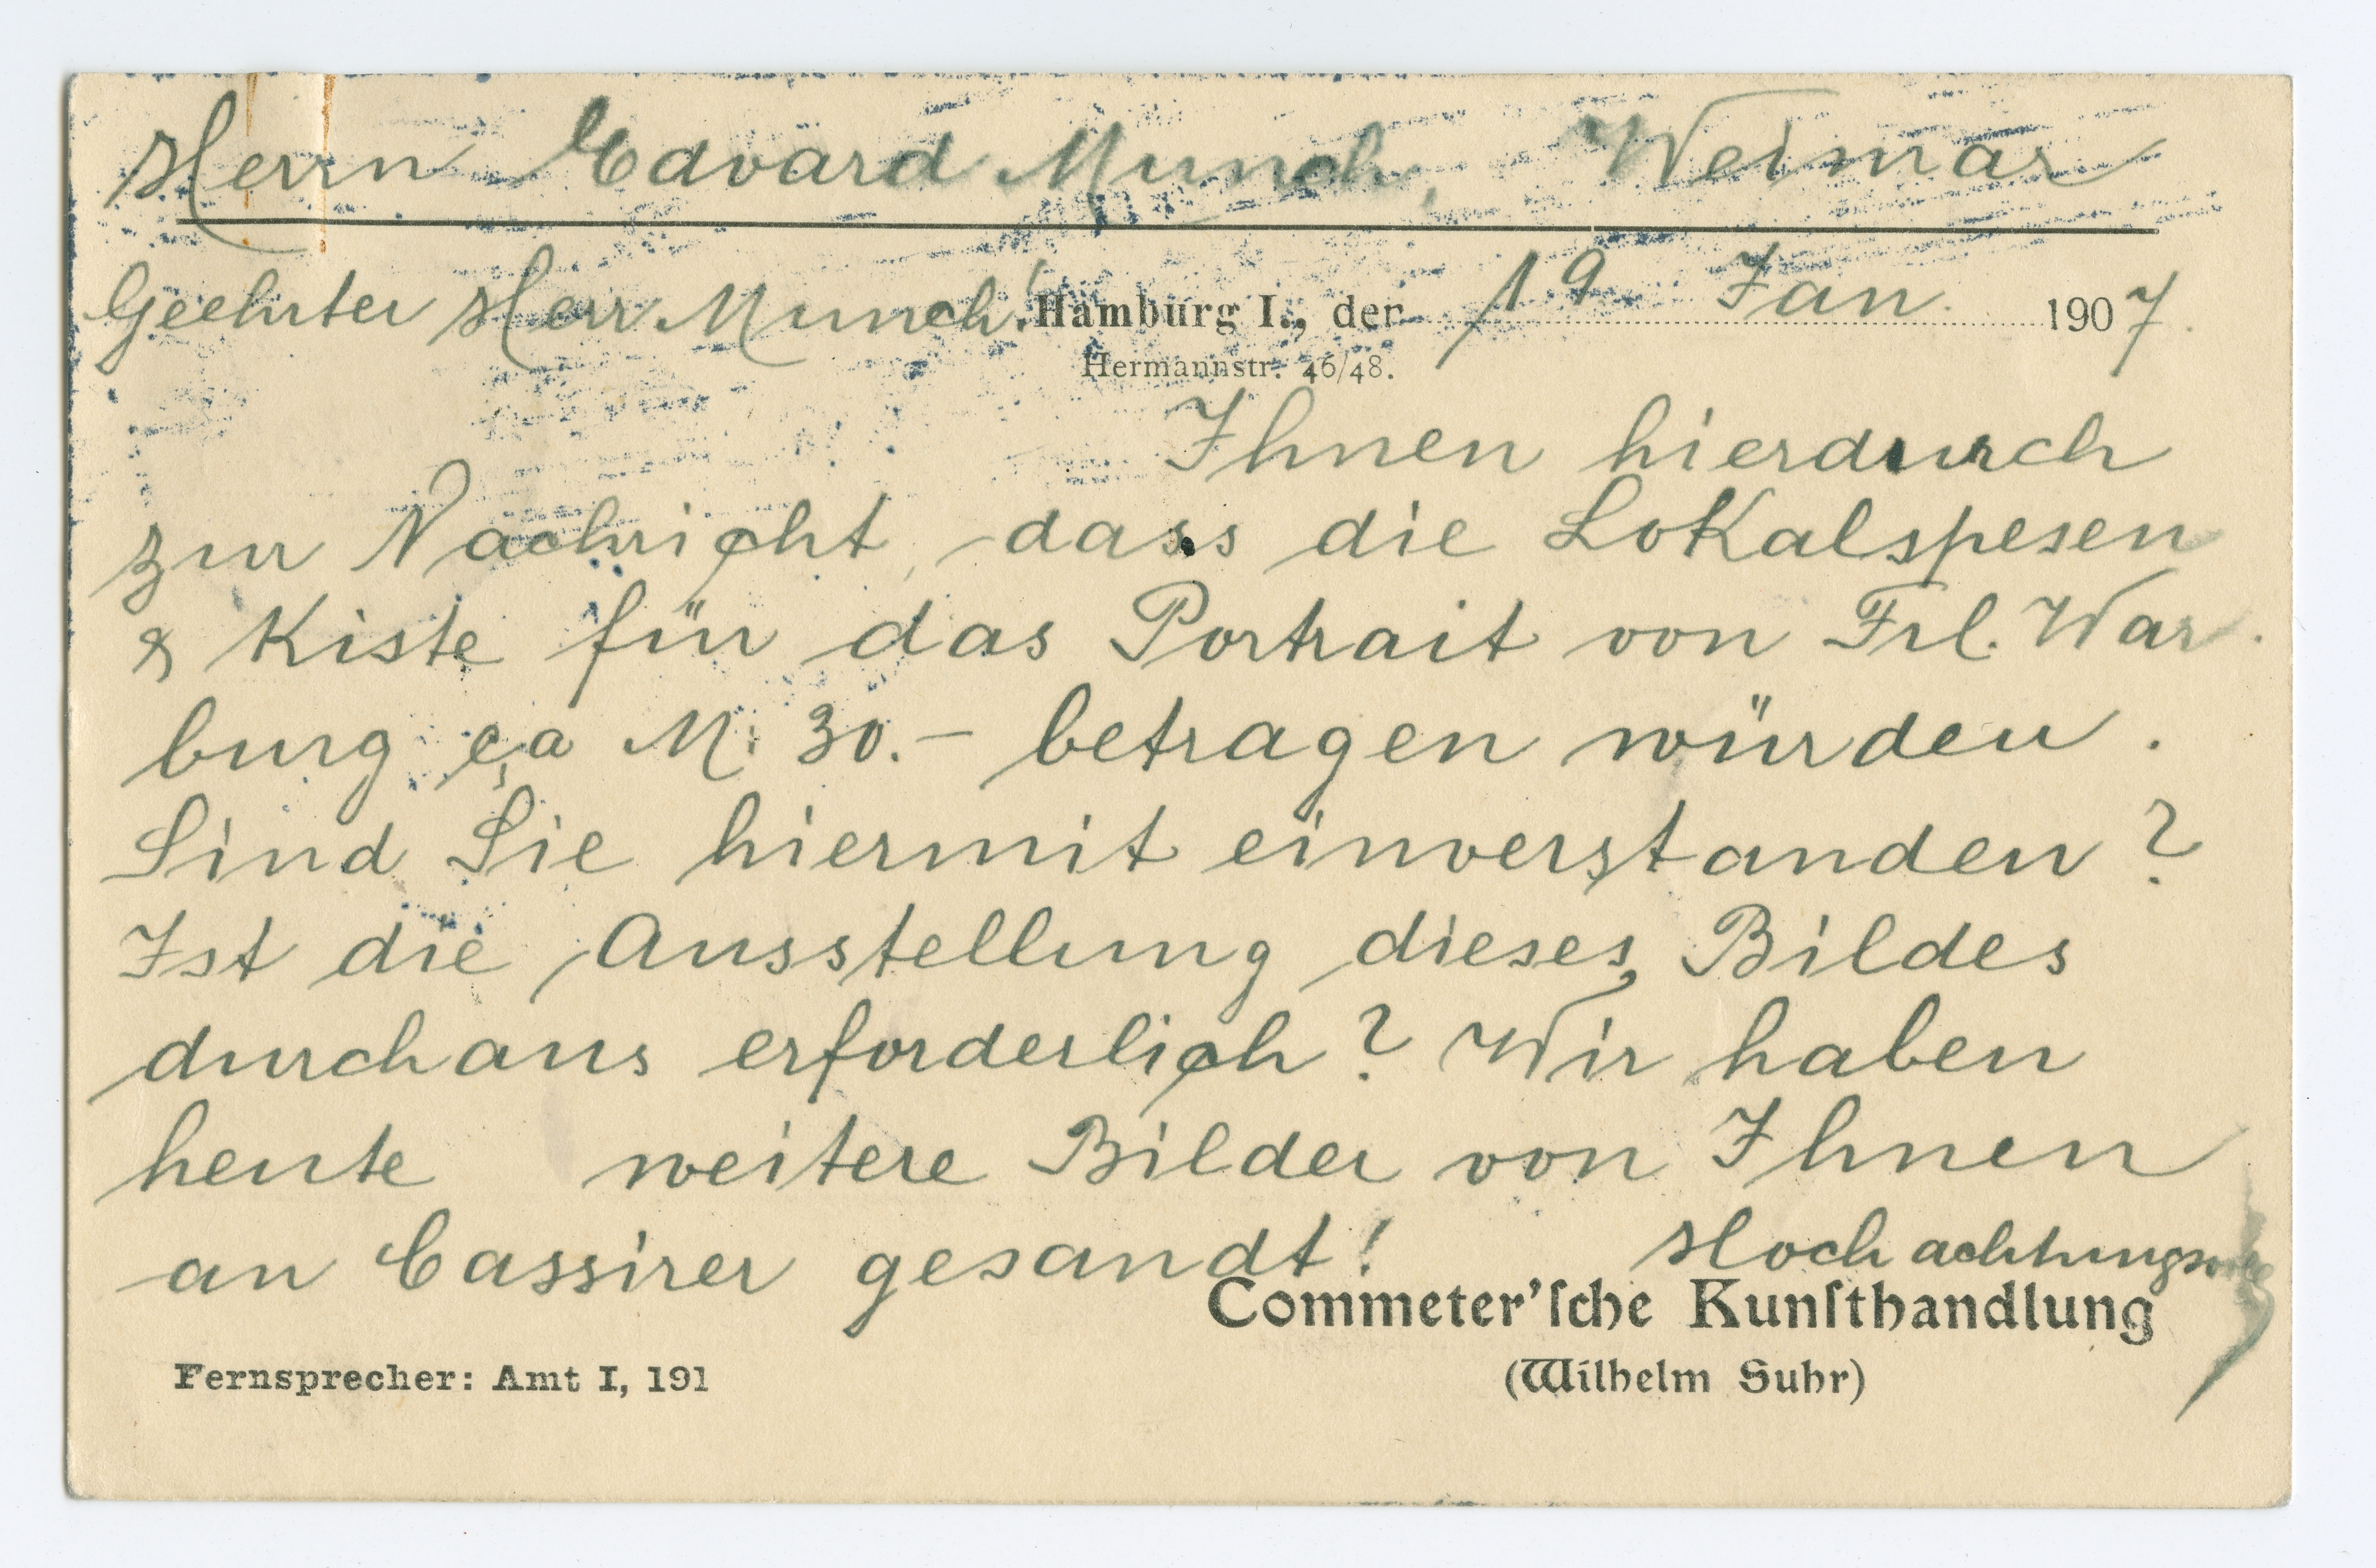 Herrn Edvard Munch, Weimar
Geehrter Herr Munch! Hamburg I., der 19 Jan. 1907.
Hermannstr. 46/48.
Ihnen hierdurch
zur Nachricht, dass die Lokalspesen
& Kiste für das Portrait von Frl. War-
burg ca M. 30.- betragen würden.
Sind Sie hiermit einverstanden?
Ist die Ausstellung dieses Bildes
durchaus erforderlich? Wir haben
heute weitere Bilder von Ihnen
an Cassirer gesandt! Hochachtungsvoll
Commeter'ſche Kunſthandlung
Fernsprecher: Amt I, 191 (Wilhelm Suhr)